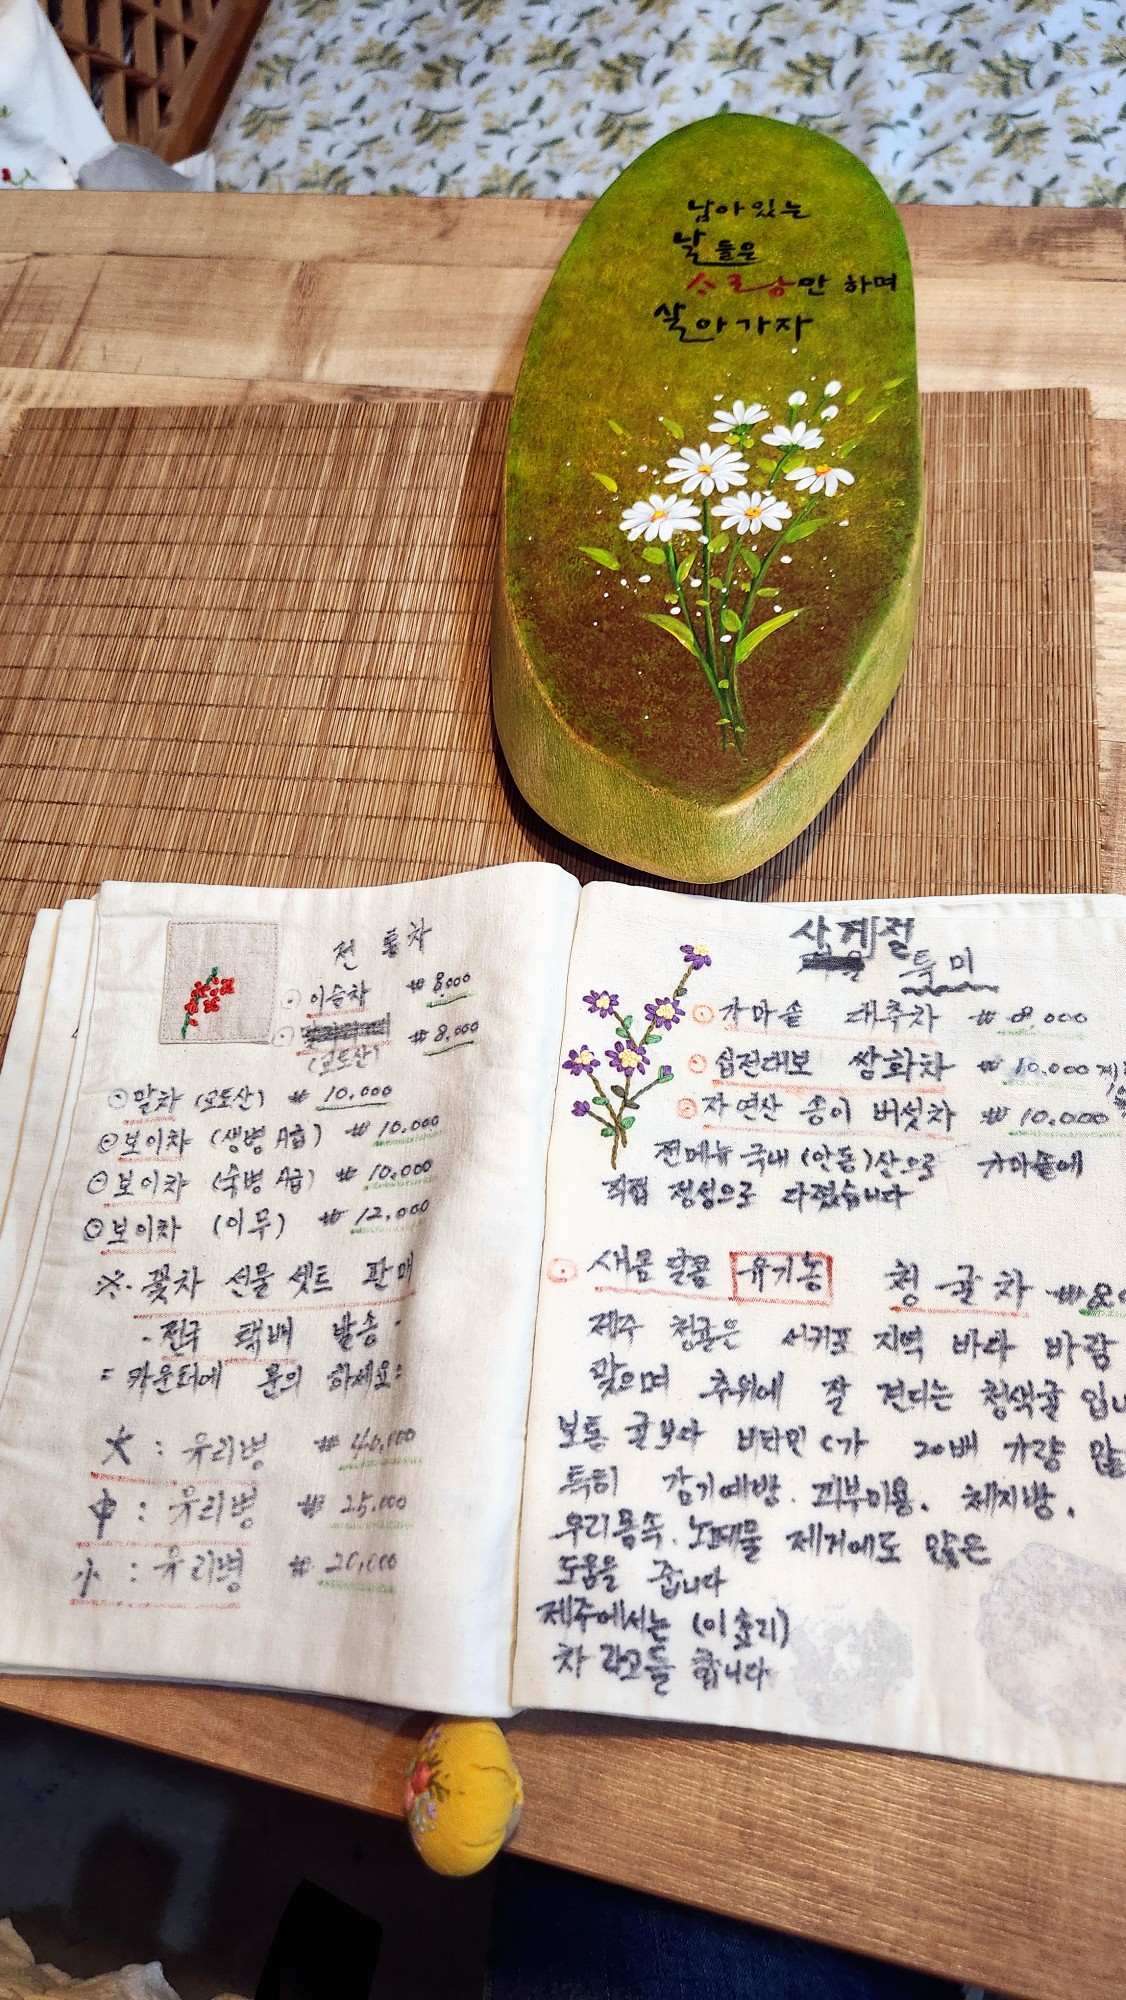 남아있는
날들은
사랑만 하며
살아가자
전통차
⊙ 이슬차 ₩ 8,000
⊙ ₩ 8,000
(교토산)
⊙ 말차 (교토산) ₩ 10.000
⊙ 보이차 (생병 A급) ₩ 10.000
⊙ 보이차 (숙병 A급) ₩ 10,000
⊙ 보이차 (이무) ₩ 12,000
※. 꽃차 선물 셋트 판매
- 전국 택배 발송 -
= 카운터에 문의 하세요:
大 : 유리병 ₩ 40,000
中 : 유리병 ₩ 25,000
小 : 유리병 ₩ 20,000
삼계절
투미
⊙ 가마솥 대추차 ₩ 8,000
⊙ 십전대보 쌍화차 ₩ 10.000
⊙ 자연산 송이 버섯차 ₩ 10.000
전메뉴 국내(안동)산으로 가마솥에
직접 정성으로 다렸습니다
⊙ 새콤 달콤 유기농 청귤차
제주 청귤은 서귀포 지역 바다 바람
맞으며 추위에 잘 견디는 청색귤
보통 귤보다 비타민 C가 20배 가량
특히 감기예방. 피부미용. 체지방.
우리몸속. 노폐물 제거에도 많은
도움을 줍니다
제주에서는 (이효리)
차 라고들 합니다